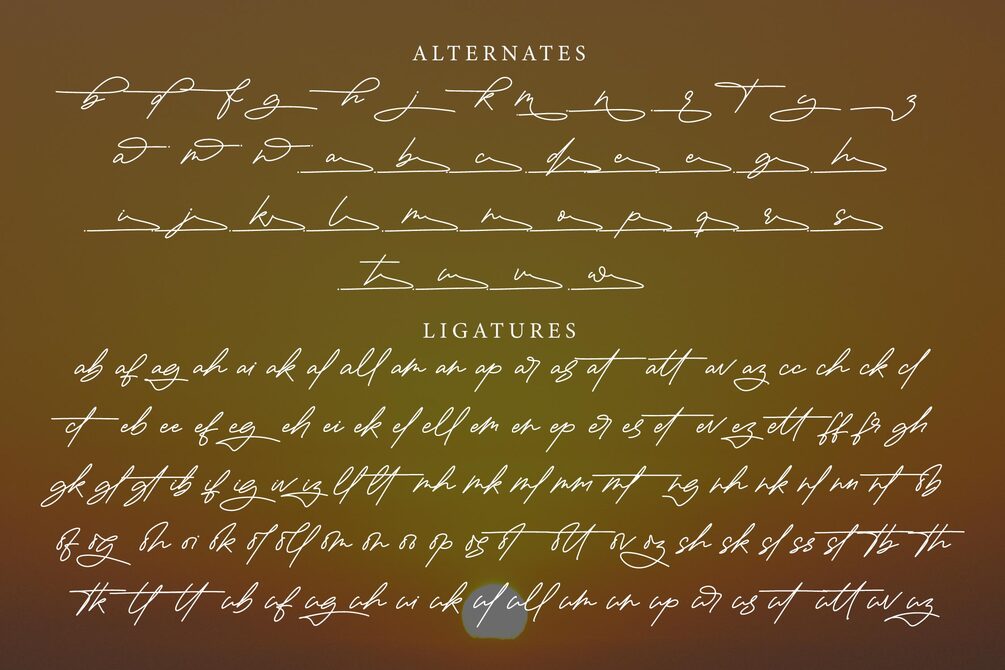 ALTERNATES
b d f g h j k m n r T y z
a m n a b c d e e g h
i j k l m n o p q r s
t u v w
LIGATURES
ab af ag ah ai ak al all am an ap ar as at att av az cc ch ck cl
ct eb ee ef eg eh ei ek el ell em en ep er es et ev ez ett ff fr gh
gk gl gt ib if ig iv iz lf lt mh mk ml mm mt ng nh nk nl nn nt ob
of og oh oi ok ol oll om on oo op os ot ott ov oz sh sk sl ss st Tb Th
Tk tl tt ub uf ug uh ui uk ul ull um un up ur us ut utt uv uz